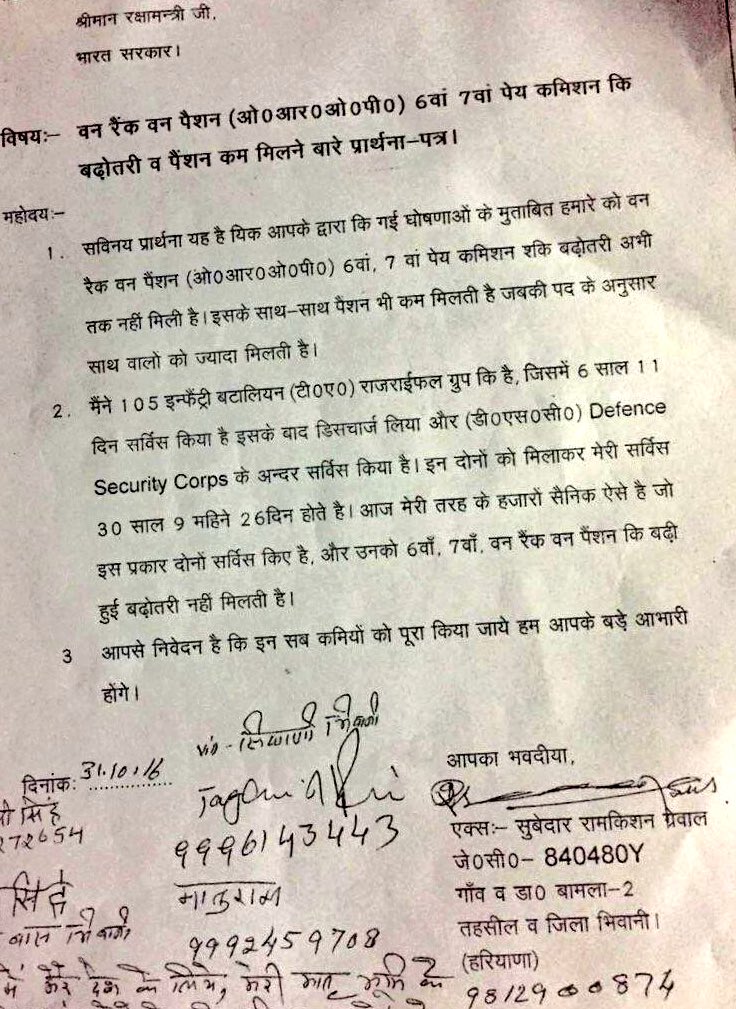 श्रीमान रक्षामन्त्री जी,
भारत सरकार।
विषयः– वन रैंक वन पैशन (ओ0आर0ओ0पी0) 6वां 7वां पेय कमिशन कि
बढ़ोतरी व पैंशन कम मिलने बारे प्रार्थना–पत्र।
महोदयः–
1. सविनय प्रार्थना यह है यिक आपके द्वारा कि गई घोषणाओं के मुताबित हमारे को वन
रैक वन पैंशन (ओ0आर0ओ0पी0) 6वां, 7 वां पेय कमिशन शकि बढ़ोतरी अभी
तक नहीं मिली है। इसके साथ–साथ पैशन भी कम मिलती है जबकी पद के अनुसार
साथ वालो को ज्यादा मिलती है।
2. मैंने 105 इन्फैंट्री बटालियन (टी0ए0) राजराईफल ग्रुप कि है, जिसमें 6 साल 11
दिन सर्विस किया है इसके बाद डिसचार्ज लिया और (डी0एस0सी0) Defence
Security Corps के अन्दर सर्विस किया है। इन दोनों को मिलाकर मेरी सर्विस
30 साल 9 महिने 26दिन होते है। आज मेरी तरह के हजारों सैनिक ऐसे है जो
इस प्रकार दोनों सर्विस किए है, और उनको 6वाँ, 7वाँ, वन रैंक वन पैंशन कि बढ़ी
हुई बढ़ोतरी नहीं मिलती है।
3 आपसे निवेदन है कि इन सब कमियों को पूरा किया जाये हम आपके बड़े आभारी
होंगे।
दिनांकः 31.10.16
सिंह
272654
9996143443
9992459708
आपका भवदीया,
एक्सः– सुबेदार रामकिशन ग्रेवाल
जे0सी0– 840480Y
गाँव व डा0 बामला–2
तहसील व जिला भिवानी।
(हरियाणा)
में और देश के लिये, मेरी मातृ भूमि के